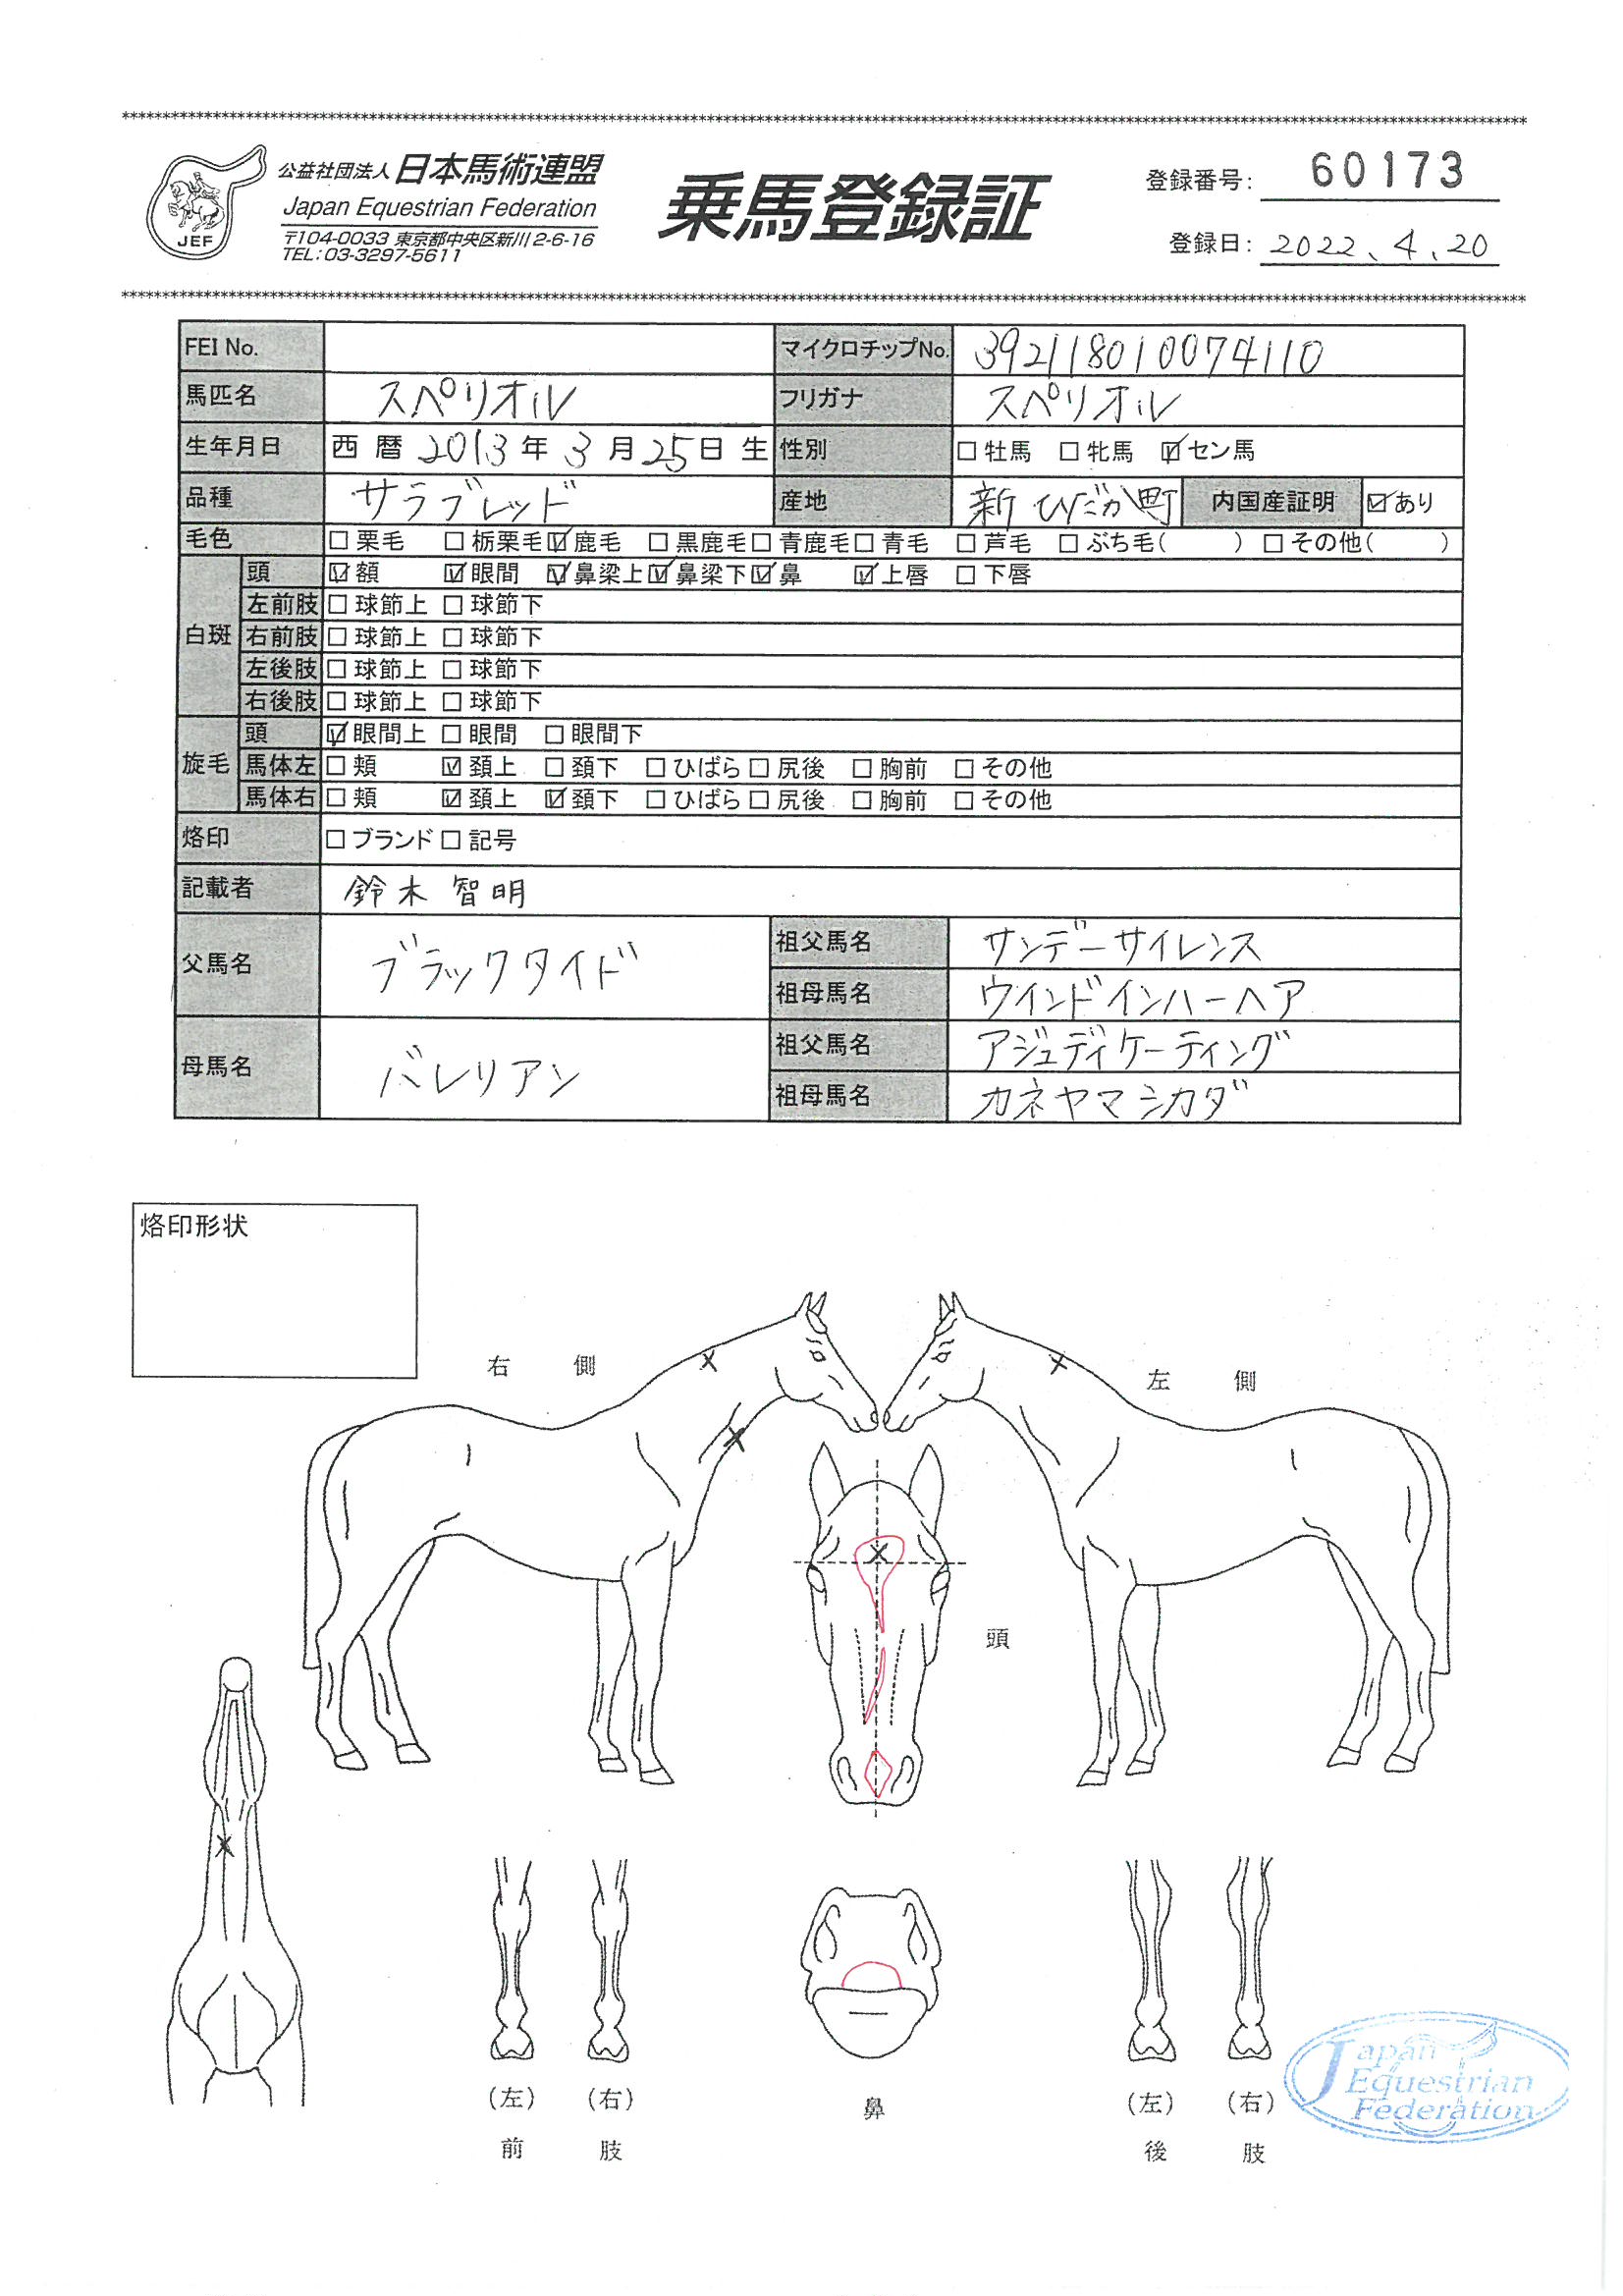 ****************************************************************
公益社団法人 日本馬術連盟
Japan Equestrian Federation
〒104-0033 東京都中央区新川2-6-16
TEL:03-3297-5611
JEF
乗馬登録証
登録番号: 60173
登録日: 2022、4、20
****************************************************************
FEI No. マイクロチップNo. 392118010074110
馬匹名 スペリオル フリガナ スペリオル
生年月日 西暦2013年3月25日生 性別 □牡馬 □牝馬 ☑セン馬
品種 サラブレッド 産地 新ひだか町 内国産証明 ☑あり
毛色 □栗毛 □栃栗毛 ☑鹿毛 □黒鹿毛 □青鹿毛 □青毛 □芦毛 □ぶち毛( ) □その他( )
白斑 頭 ☑額 ☑眼間 ☑鼻梁上 ☑鼻梁下 ☑鼻 ☑上唇 □下唇
左前肢 □球節上 □球節下
右前肢 □球節上 □球節下
左後肢 □球節上 □球節下
右後肢 □球節上 □球節下
旋毛 頭 ☑眼間上 □眼間 □眼間下
馬体左 □頬 ☑頚上 □頚下 □ひばら □尻後 □胸前 □その他
馬体右 □頬 ☑頚上 ☑頚下 □ひばら □尻後 □胸前 □その他
烙印 □ブランド □記号
記載者 鈴木智明
父馬名 ブラックタイド 祖父馬名 サンデーサイレンス
祖母馬名 ウインドインハーヘア
母馬名 バレリアン 祖父馬名 アジュディケーティング
祖母馬名 カネヤマシカダ
烙印形状
右側 左側
頭
(左) (右) 鼻 (左) (右)
前肢 後肢
Japan
Equestrian
Federation